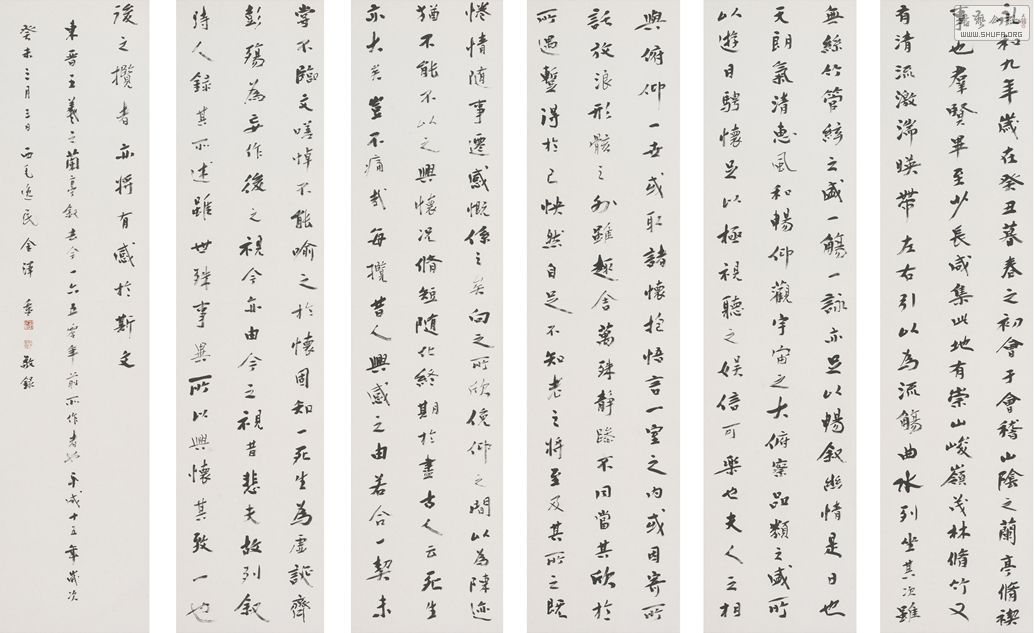 永和九年歲在癸丑暮春之初會于會稽山陰之蘭亭脩禊
事也羣賢畢至少長咸集此地有崇山峻嶺茂林脩竹又
有清流激湍暎帶左右引以為流觴曲水列坐其次雖
無絲竹管絃之盛一觴一詠亦足以暢叙幽情是日也
天朗氣清惠風和暢仰觀宇宙之大俯察品類之盛所
以遊目騁懷足以極視聽之娱信可樂也夫人之相
與俯仰一世或取諸懷抱悟言一室之内或因寄所
託放浪形骸之外雖趣舍萬殊静躁不同當其欣於
所遇蹔得於己怏然自足不知老之將至及其所之既
惓情隨事遷感慨係之矣向之所欣俛仰之間以為陳迹
猶不能不以之興懷況脩短隨化終期於盡古人云死生
亦大矣豈不痛哉每攬昔人興感之由若合一契未
甞不臨文嗟悼不能喻之於懷固知一死生為虛誕齊
彭殤為妄作後之視今亦由今之視昔悲夫故列叙
時人録其所述雖世殊事異所以興懷其致一也
後之攬者亦將有感於斯文
東晋王羲之蘭亭叙去今一六五零年前所作者也平成十五年歲次
癸未三月三日西毛逸民金澤敬録
WWW.SHUFA.ORG